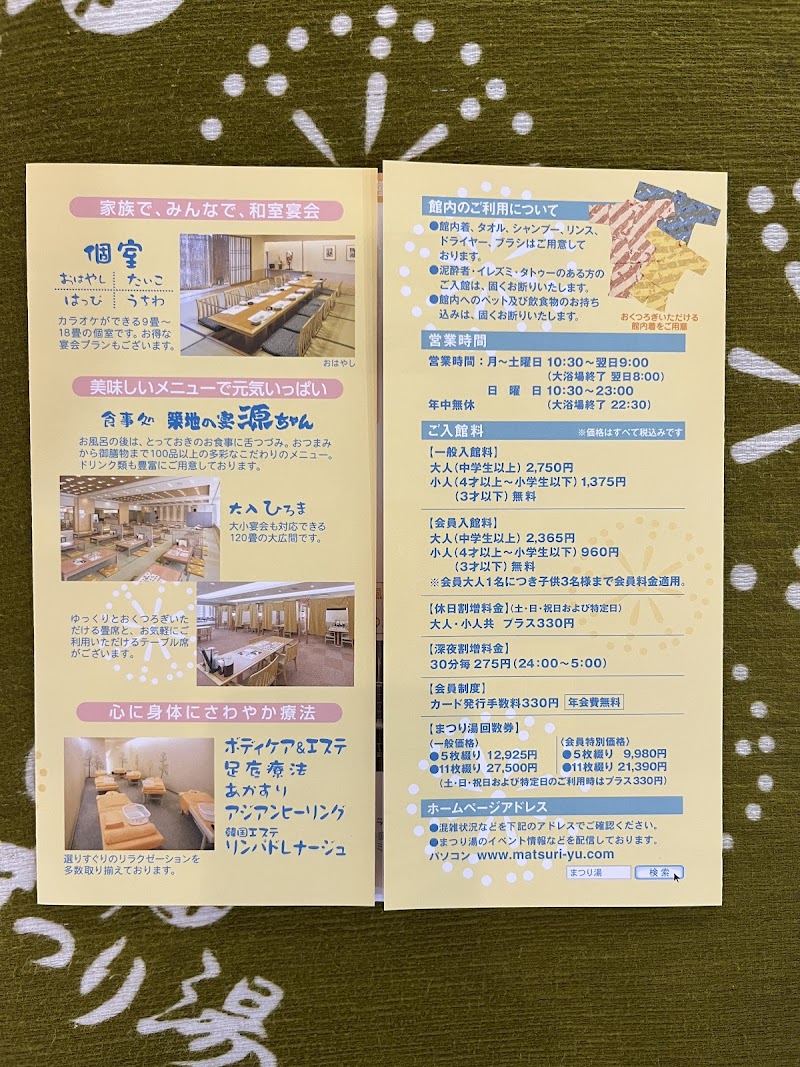 家族で、みんなで、和室宴会
個室
おはやし たいこ
はっぴ うちわ
カラオケができる9畳～
18畳の個室です。お得な
宴会プランもございます。
おはやし
美味しいメニューで元気いっぱい
食事処 築地の宴 源ちゃん
お風呂の後は、とっておきのお食事に舌つづみ。おつまみ
から御膳物まで100品以上の多彩なこだわりのメニュー。
ドリンク類も豊富にご用意しております。
大入ひろま
大小宴会も対応できる
120畳の大広間です。
ゆっくりとおくつろぎいた
だける畳席と、お気軽にご
利用いただけるテーブル席
がございます。
心に身体にさわやか療法
ボディケア&エステ
足底療法
あかすり
アジアンヒーリング
韓国エステ
リンパドレナージュ
選りすぐりのリラクゼーションを
多数取り揃えております。
館内のご利用について
●館内着、タオル、シャンプー、リンス、
ドライヤー、ブラシはご用意して
おります。
●泥酔者・イレズミ・タトゥーのある方の
ご入館は、固くお断りいたします。
●館内へのペット及び飲食物のお持ち
込みは、固くお断りいたします。
おくつろぎいただける
館内着をご用意
営業時間
営業時間：月～土曜日 10:30～翌日9:00
（大浴場終了 翌日8:00）
日 曜 日 10:30～23:00
年中無休 （大浴場終了 22:30）
ご入館料 ※価格はすべて税込みです
【一般入館料】
大人（中学生以上）2,750円
小人（4才以上～小学生以下）1,375円
（3才以下）無料
【会員入館料】
大人（中学生以上）2,365円
小人（4才以上～小学生以下）960円
（3才以下）無料
※会員大人1名につき子供3名様まで会員料金適用。
【休日割増料金】（土・日・祝日および特定日）
大人・小人共 プラス330円
【深夜割増料金】
30分毎 275円（24:00～5:00）
【会員制度】
カード発行手数料330円 年会費無料
【まつり湯回数券】
〈一般価格〉 〈会員特別価格〉
●5枚綴り 12,925円 ●5枚綴り 9,980円
●11枚綴り 27,500円 ●11枚綴り 21,390円
（土・日・祝日および特定日のご利用時はプラス330円）
ホームページアドレス
●混雑状況などを下記のアドレスでご確認ください。
●まつり湯のイベント情報などを配信しております。
パソコン www.matsuri-yu.com
まつり湯 検索
つり湯